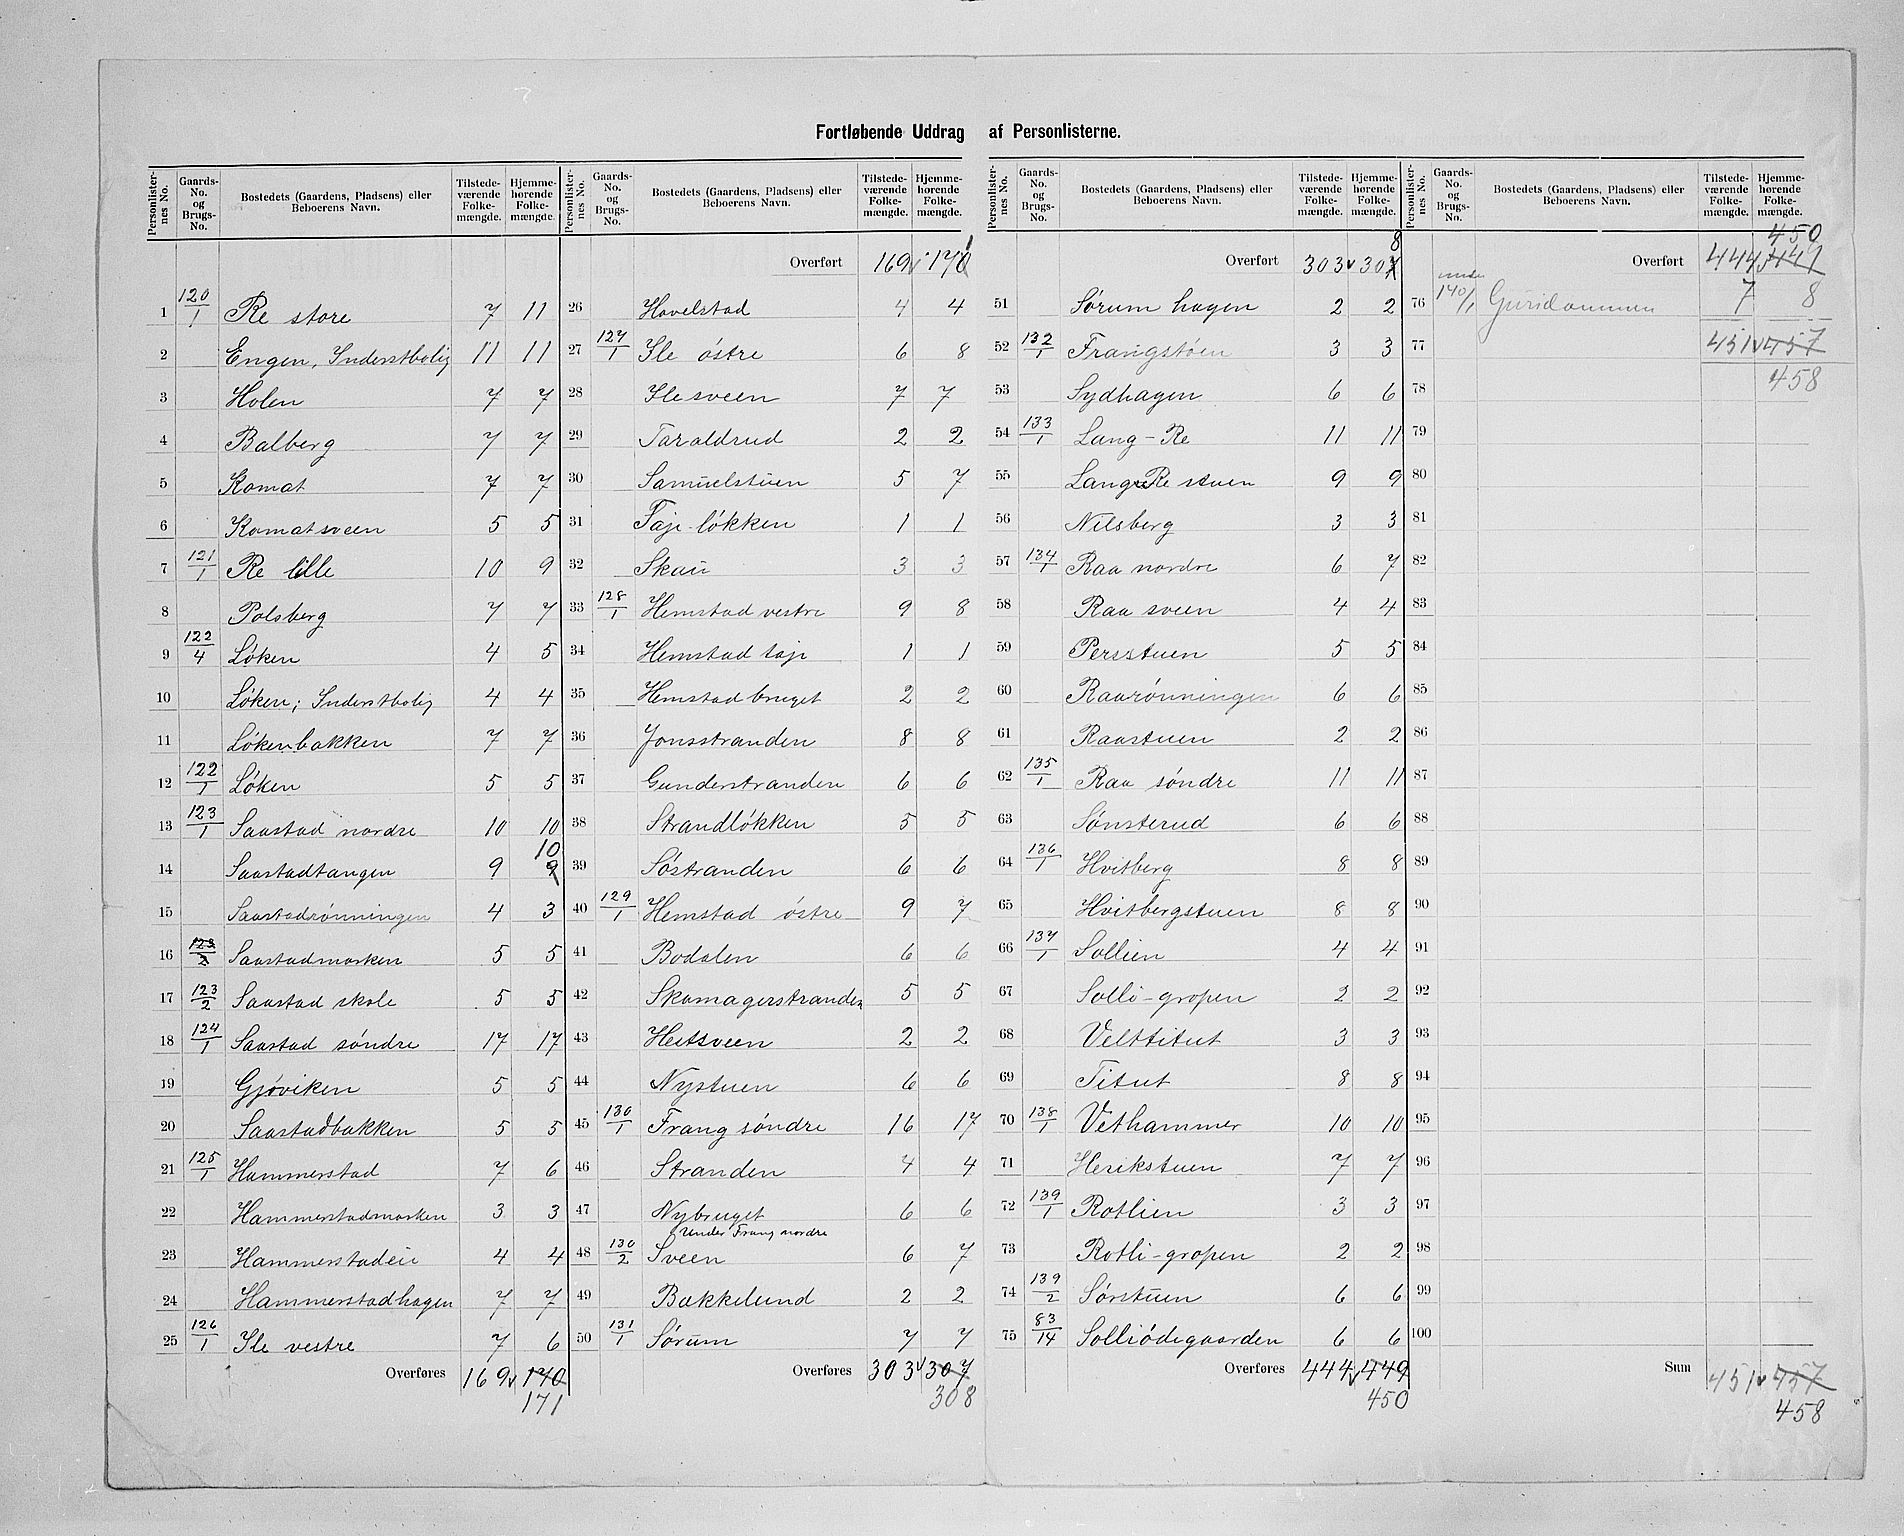 Fortløbende Uddrag af Personlisterne.
Personlister-nes No. Gaards-No. og Brugs-No. Bostedets (Gaardens, Pladsens) eller Beboerens Navn. Tilstede-værende Folke-mængde. Hjemme-hørende Folke-mængde.
1 120/1 Re store 7 11
2 Engen, Inderstbolig 11 11
3 Holen 7 7
4 Balberg 7 7
5 Komat 7 7
6 Komatsveen 5 5
7 121/1 Re lille 10 9
8 Polsberg 7 7
9 122/4 Løken 4 5
10 Løken; Inderstbolig 4 4
11 Løkenbakken 7 7
12 122/1 Løken 5 5
13 123/1 Saastad nordre 10 10
14 Saastadtangen 9 9 10
15 Saastadrønningen 4 3
16 123/2 Saastadmarken 5 5
17 123/2 Saastad skole 5 5
18 124/1 Saastad søndre 17 17
19 Gjøviken 5 5
20 Saastadbakken 5 5
21 125/1 Hammerstad 7 6
22 Hammerstadmarken 3 3
23 Hammerstadeie 4 4
24 Hammerstadhagen 7 7
25 126/1 Ile vestre 7 6
Overføres 169 170
171
Personlister-nes No. Gaards-No. og Brugs-No. Bostedets (Gaardens, Pladsens) eller Beboerens Navn. Tilstede-værende Folke-mængde. Hjemme-hørende Folke-mængde.
Overført 169 170 1
26 Hovelstad 4 4
27 127/1 Ile østre 6 8
28 Ilesveen 7 7
29 Taraldrud 2 2
30 Samuelstuen 5 7
31 Taje-løkken 1 1
32 Skau 3 3
33 128/1 Hemstad vestre 9 8
34 Hemstad taje 1 1
35 Hemstad bruget 2 2
36 Jonsstranden 8 8
37 Gunderstranden 6 6
38 Strandløkken 5 5
39 Søstranden 6 6
40 129/1 Hemstad østre 9 7
41 Bodalen 6 6
42 Skomagerstranden 5 5
43 Heitsveen 2 2
44 Nystuen 6 6
45 130/1 Frang søndre 16 17
46 Stranden 4 4
47 Nybruget 6 6
Under Frang nordre
48 130/2 Sveen 6 7
49 Bakkelund 2 2
50 131/1 Sørum 7 7
Overføres 303 307
308
Personlister-nes No. Gaards-No. og Brugs-No. Bostedets (Gaardens, Pladsens) eller Beboerens Navn. Tilstede-værende Folke-mængde. Hjemme-hørende Folke-mængde.
8
Overført 303 307
51 Sørum hagen 2 2
52 132/1 Frangstøen 3 3
53 Sydhagen 6 6
54 133/1 Lang-Re 11 11
55 Lang-Re stuen 9 9
56 Nilsberg 3 3
57 134/1 Raa nordre 6 7
58 Raa sveen 4 4
59 Persstuen 5 5
60 Raarønningen 6 6
61 Raastuen 2 2
62 135/1 Raa søndre 11 11
63 Sønsterud 6 6
64 136/1 Hvitberg 8 8
65 Hvitbergstuen 8 8
66 137/1 Sollien 4 4
67 Solli-gropen 2 2
68 Velttitut 3 3
69 Titut 8 8
70 138/1 Vethammer 10 10
71 Henkstuen 7 7
72 139/1 Rotlien 3 3
73 Rotli-gropen 2 2
74 139/2 Sørstuen 6 6
75 83/14 Solliødegaarden 6 6
Overføres 444 449
450
Personlister-nes No. Gaards-No. og Brugs-No. Bostedets (Gaardens, Pladsens) eller Beboerens Navn. Tilstede-værende Folke-mængde. Hjemme-hørende Folke-mængde.
450
Overført 444 449
under
76 140/1 Guridammen 7 8
77 451 457
78 458
79
80
81
82
83
84
85
86
87
88
89
90
91
92
93
94
95
96
97
98
99
100
Sum 451 457
458